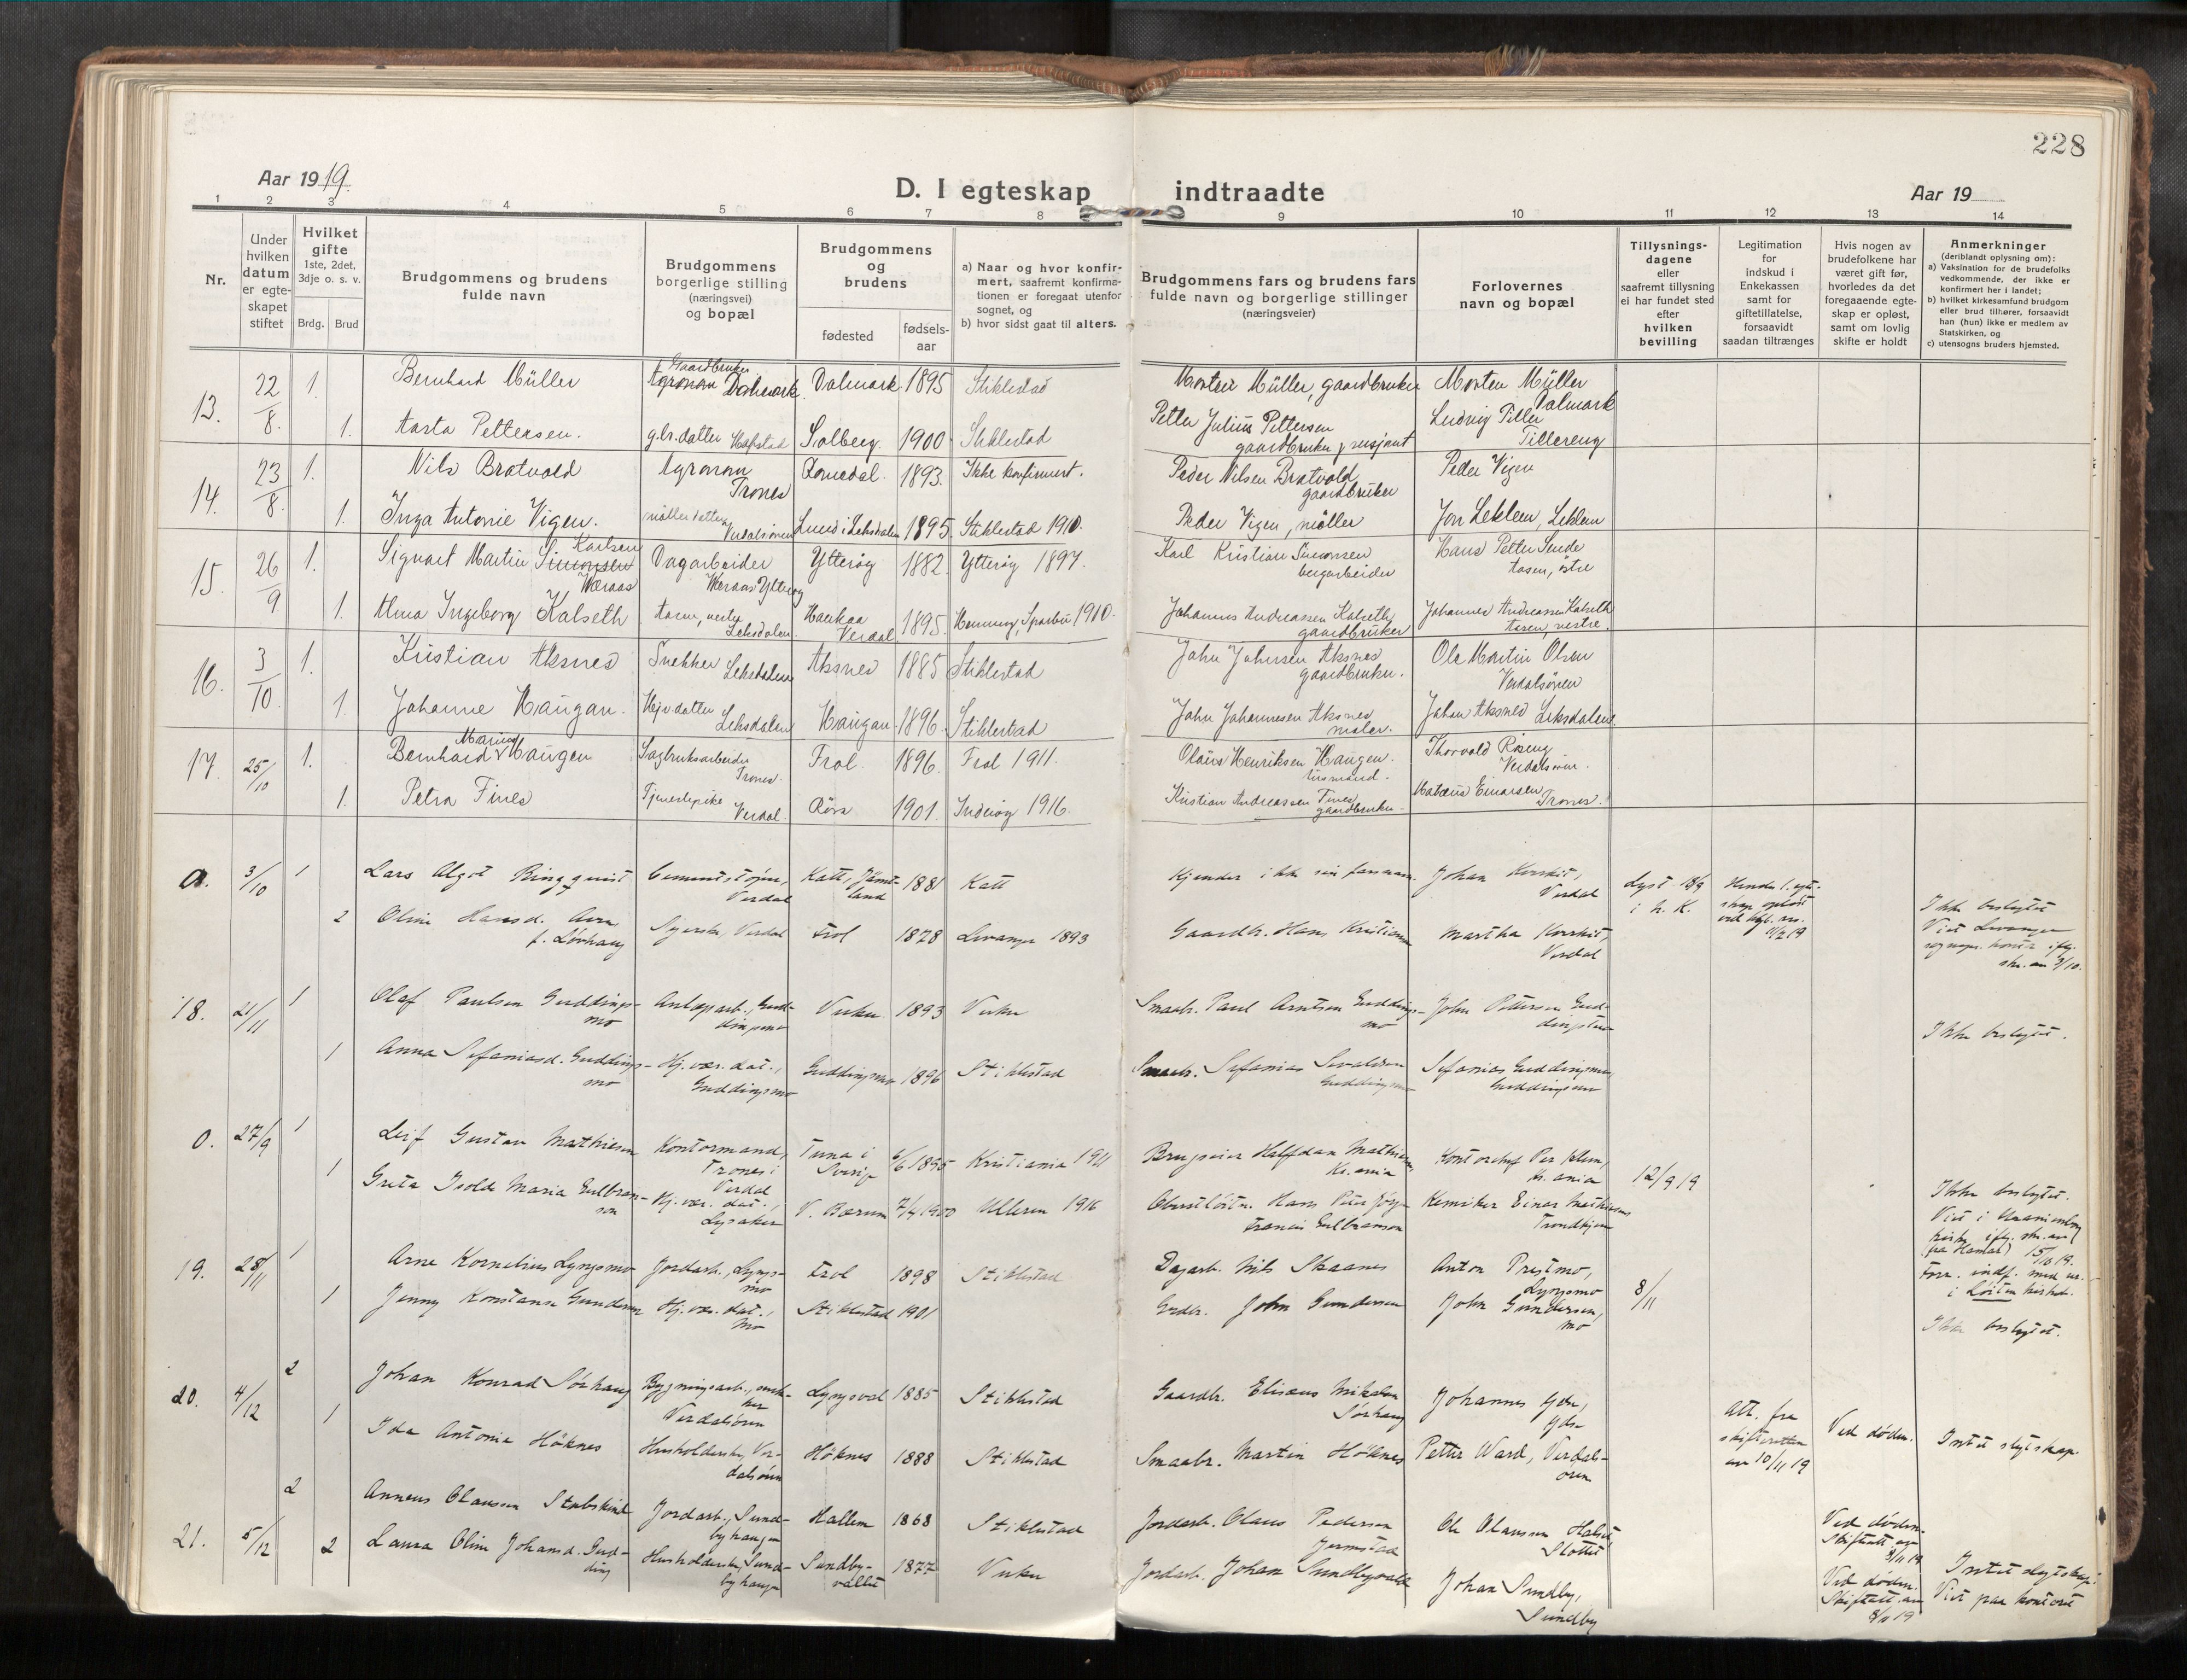 228
Aar 1919.
D. I egteskap indtraadte
Aar 19
1 2 3 4 5 6 7 8 9 10 11 12 13 14
Nr.
Under hvilken datum er egteskapet stiftet
Hvilket gifte 1ste, 2det, 3dje o. s. v.
Brdg. Brud
Brudgommens og brudens fulde navn
Brudgommens borgerlige stilling (næringsvei) og bopæl
Brudgommens og brudens
fødested
fødsels-aar
a) Naar og hvor konfirmert, saafremt konfirmationen er foregaat utenfor sognet, og
b) hvor sidst gaat til alters.
Brudgommens fars og brudens fars fulde navn og borgerlige stillinger (næringsveier)
Forlovernes navn og bopæl
Tillysningsdagene eller saafremt tillysning ei har fundet sted efter hvilken bevilling
Legitimation for indskud i Enkekassen samt for giftetillatelse, forsaavidt saadan tiltrænges
Hvis nogen av brudefolkene har været gift før, hvorledes da det foregaaende egteskap er opløst, samt om lovlig skifte er holdt
Anmerkninger (deriblandt oplysning om):
a) Vaksination for de brudefolks vedkommende, der ikke er konfirmert her i landet;
b) hvilket kirkesamfund brudgom eller brud tilhører, forsaavidt han (hun) ikke er medlem av Statskirken, og
c) utensogns bruders hjemsted.
13. 22/8. 1. Bernhard Müller Gaardbruker Agronom Dalmark Dalmark 1895 Stiklestad Morten Müller, gaardbruker Morten Müller Dalmark
1. Aasta Pettersen. g.br.datter Hafstad Solberg 1900 Stiklestad Petter Julius Pettersen gaardbruker Ludvig Tiller Tillereng
14. 23/8. 1. Nils Bratvold Agronom Trones Romedal 1893. Ikke konfirmert. Peder Nilsen Bratvold gaardbruker Peder Vigen
1. Inga Antonie Vigen. møllerdatter Verdalsøren Lund i Leksdalen 1895 Stiklestad 1910. Peder Vigen, møller Jon Leklem, Leklem
15. 26/9 1. Sigvart Martin Simonsen Karlsen Væraas Dagarbeider Væraas Ytterøy Ytterøy 1882 Ytterøy 1897. Karl Kristian Simonsen bergarbeider Hans Petter Sende Aasen, østre
1. Alma Ingeborg Kalseth Aasen, vestre Leksdalen Haukaa Verdal 1895. Henning, Sparbu 1910. Johannes Andreassen Kalseth gaardbruker Johannes Andreassen Kalseth Aasen, vestre.
16. 3/10 1. Kristian Aksnes Snekker Leksdalen Aksnes 1885 Stiklestad John Johnsen Aksnes gaardbruker. Ole Martin Olsen Verdalsøren
1. Johanne Haugan. Hjv. datter Leksdalen Haugan 1896. Stiklestad John Johannesen Aksnes maler. Johan Aksnes Leksdalen
17. 25/10 1. Bernhard Marius Haugen Sagbruksarbeider Trones. Frol 1896. Frol 1911. Olaus Henriksen Haugen. Thorvald Røseng Verdalsøren.
1. Petra Fines Tjenestepike Verdal. Røra 1901. Inderøy 1916. Kristian Andreassen Fines gaardbruker Mateus Einarsen Trones.
a. 3/10 1 Lars Algot Ringquist Cementstøper, Verdal Kall, Jämtland 1881 Kall Kjender ikke sin farsnavn. Johan Verdal Lyst 18/9 i h. K.
2 Oline Hansd. f. Løvhaug Syerske, Verdal Frol 1878 Levanger 1893 Gaardbr. Hans Kristiansen Martha Verdal Ikke beslegtet
Viet Levanger 3/10.
18. 21/11 1 Olaf Paulsen Guddingsmo Anlægsarb., Guddingsmo Vuku 1893 Vuku Smaabr. Paul Arntsen Guddingsmo John Pettersen Ikke beslegtet.
1 Anna Sefaniasd. Guddingsmo Hj.vær. dat., Guddingsmo Guddingsmo 1896 Stiklestad Smaabr. Sefanias Sevaldsen Guddingsmo Sefanias Guddingsmo Guddingsmo
0. 27/9 1 Leif Gustav Mathiesen Kontormand, Trones i Verdal Tuna i Sverige 1895 Kristiania 1911 Halfdan Mathiesen, Kr.ania Kontorchef Per Klem, Kr.ania 12/9 19
1 Greta Isolde Maria Gulbranson Hj.vær. dat., Lysaker V. Bærum 7/4 1900 Ullern 1916 Oberstløitn. Hans Peter Francis Gulbranson Kemiker Einar Mathiesen Trondhjem Ikke beslegtet.
Viet i
19. 28/11 1 Arne Kornelius Lyngsmo Jordarb., Lyngsmo Frol 1898 Stiklestad Dagarb. Nils Skaanes Anton Prestmo, Lyngsmo 8/11
1 Jenny Konstanse Gundersen Hj.vær. dat., Mo Stiklestad 1901 Grdbr. John Gundersen John Gundersen, Mo Ikke beslegtet.
20. 4/12 2 Johan Konrad Sørhaug Bygningsarb., snekker Verdalsøren Lyngsvol 1885 Stiklestad Gaardbr. Eliseus Mikalsen Sørhaug Johannes Ydse, Ydse Att. fra skifteretten av 10/11 19 Ved døden. Intet slegtskap.
1 Ida Antonie Høknes Husholderske, Verdalsøren Høknes 1888 Stiklestad Smaabr. Martin Høknes Petter Ward, Verdalsøren
21. 5/12 2 Anneus Olausen Stubskind Jordarb., Sundbyhaugen Hallem 1868 Stiklestad Jordarb. Olaus Pedersen Ole Olausen Ved døden. Skifteatt. av 8/11 19
2 Laura Oline Johansd. Gudding Husholderske, Sundbyhaugen Sundbyvaldet 1877 Vuku Jordarb. Johan Sundbyvald Johan Sundby, Sundby Ved døden. Skifteatt. av 8/11 19 Intet slegtskap.
Viet paa kontoret